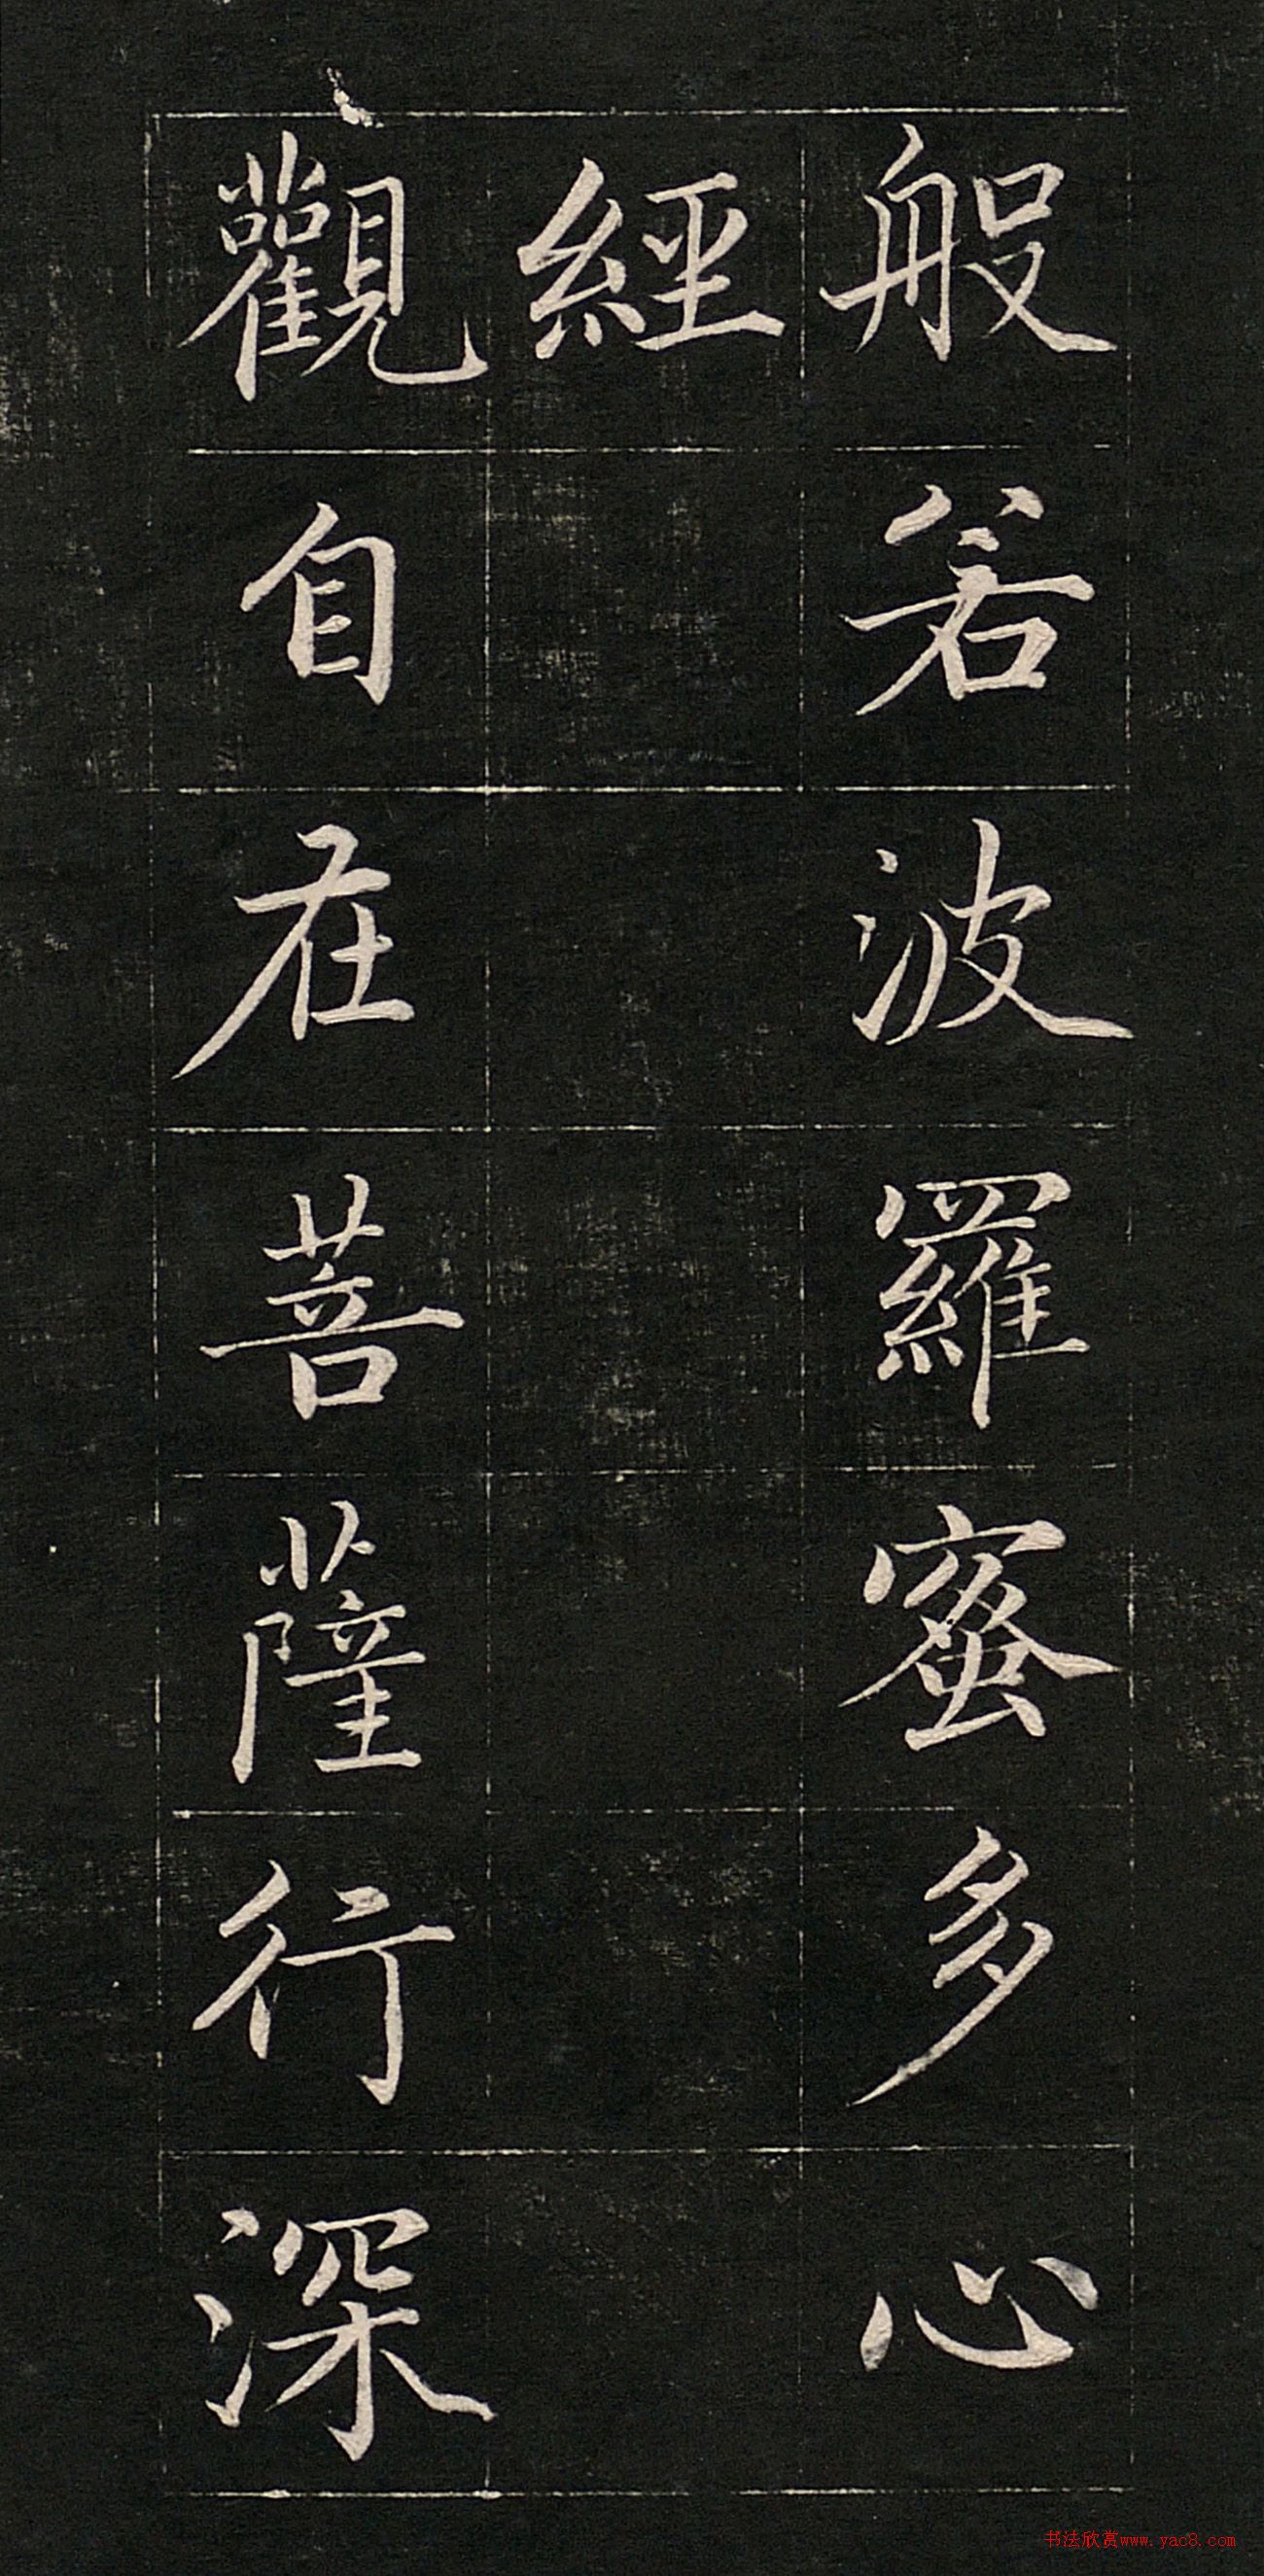 般若波羅蜜多心
經
觀自在菩薩行深
书法欣赏www.yac8.com